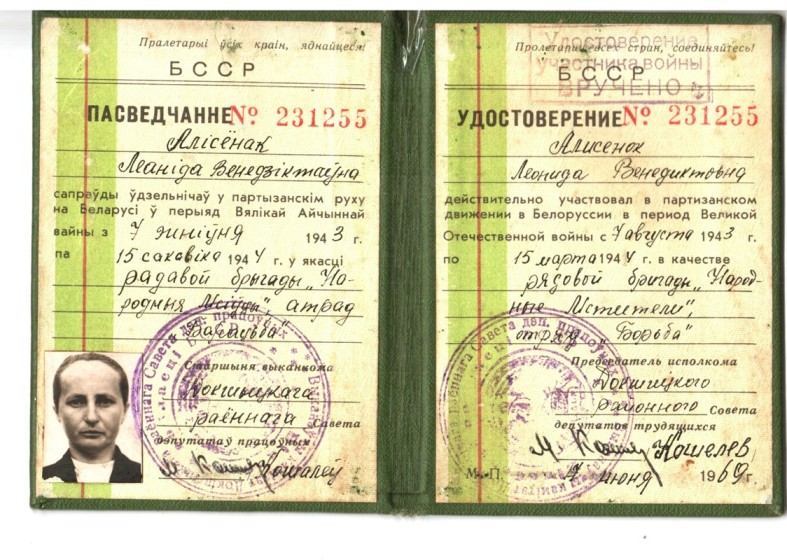 Пралетарыі ўсіх краін, яднайцеся!
БССР
ПАСВЕДЧАННЕ № 231255
Алісёнак
Леаніда Венедзіктаўна
сапраўды ўдзельнічаў у партызанскім руху
на Беларусі ў перыяд Вялікай Айчыннай
вайны з 7 жніўня 1943 г.
па 15 сакавіка 1944 г. у якасці
радавой брыгады „На-
родныя Мсціўцы", атрад
"Барацьба"
Старшыня выканкома
Докшыцкага
раённага Савета
дэпутатаў працоўных
Кошалеў
Пролетарии всех стран, соединяйтесь!
Удостоверение
участника войны
ВРУЧЕНО
БССР
УДОСТОВЕРЕНИЕ № 231255
Алисенок
Леонида Венедиктовна
действительно участвовал в партизанском
движении в Белоруссии в период Великой
Отечественной войны с 7 августа 1943 г.
по 15 марта 1944 г. в качестве
рядовой бригады „Народ-
ные Мстители",
отряд "Борьба"
Председатель исполкома
Докшицкого
районного Совета
депутатов трудящихся
Кошелев
М. П. 7 июня 1969 г.